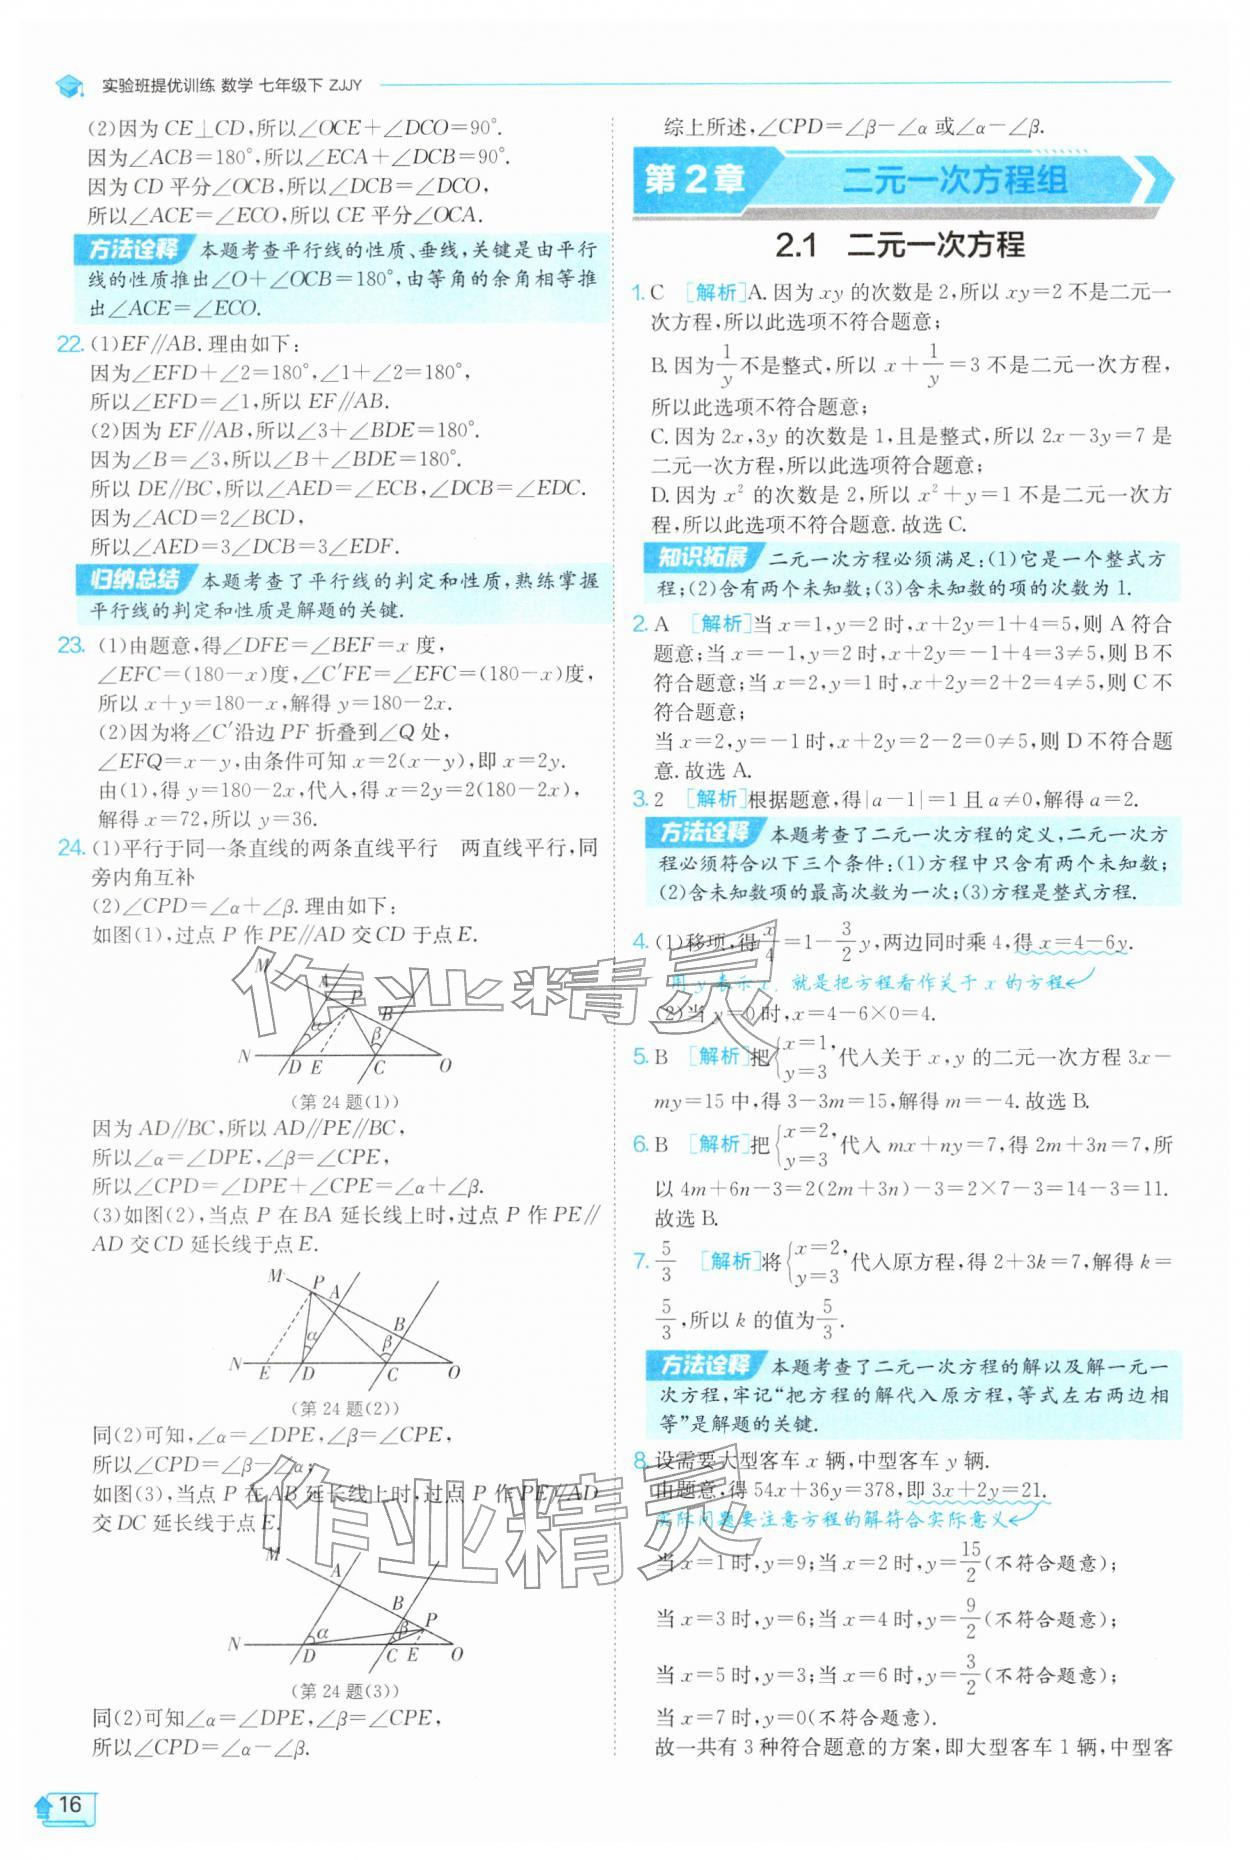 实验班提优训练 数学 七年级下 ZJJY
(2)因为 CE⊥CD,所以∠OCE+∠DCO=90°.
因为∠ACB=180°,所以∠ECA+∠DCB=90°.
因为 CD 平分∠OCB,所以∠DCB=∠DCO,
所以∠ACE=∠ECO,所以 CE 平分∠OCA.
方法诠释 本题考查平行线的性质、垂线,关键是由平行
线的性质推出∠O+∠OCB=180°,由等角的余角相等推
出∠ACE=∠ECO.
22. (1)EF∥AB.理由如下:
因为∠EFD+∠2=180°,∠1+∠2=180°,
所以∠EFD=∠1,所以 EF∥AB.
(2)因为 EF∥AB,所以∠3+∠BDE=180°.
因为∠B=∠3,所以∠B+∠BDE=180°.
所以 DE∥BC,所以∠AED=∠ECB,∠DCB=∠EDC.
因为∠ACD=2∠BCD,
所以∠AED=3∠DCB=3∠EDF.
归纳总结 本题考查了平行线的判定和性质,熟练掌握
平行线的判定和性质是解题的关键.
23. (1)由题意,得∠DFE=∠BEF=x 度,
∠EFC=(180-x)度,∠C′FE=∠EFC=(180-x)度,
所以 x+y=180-x,解得 y=180-2x.
(2)因为将∠C′沿边 PF 折叠到∠Q 处,
∠EFQ=x-y,由条件可知 x=2(x-y),即 x=2y.
由(1),得 y=180-2x,代入,得 x=2y=2(180-2x),
解得 x=72,所以 y=36.
24. (1)平行于同一条直线的两条直线平行　两直线平行,同
旁内角互补
(2)∠CPD=∠α+∠β.理由如下:
如图(1),过点 P 作 PE∥AD 交 CD 于点 E.
M A P B α β N D E C O
(第 24 题(1))
因为 AD∥BC,所以 AD∥PE∥BC,
所以∠α=∠DPE,∠β=∠CPE,
所以∠CPD=∠DPE+∠CPE=∠α+∠β.
(3)如图(2),当点 P 在 BA 延长线上时,过点 P 作 PE∥
AD 交 CD 延长线于点 E.
M P A B α β N E D C O
(第 24 题(2))
同(2)可知,∠α=∠DPE,∠β=∠CPE,
所以∠CPD=∠β-∠α;
如图(3),当点 P 在 AB 延长线上时,过点 P 作 PE∥AD
交 DC 延长线于点 E.
M A B P α β N D C E O
(第 24 题(3))
同(2)可知∠α=∠DPE,∠β=∠CPE,
所以∠CPD=∠α-∠β.
16
综上所述,∠CPD=∠β-∠α 或∠α-∠β.
第 2 章 二元一次方程组
2.1 二元一次方程
1. C [解析]A.因为 xy 的次数是 2,所以 xy=2 不是二元一
次方程,所以此选项不符合题意;
B.因为1/y不是整式,所以 x+1/y=3 不是二元一次方程,
所以此选项不符合题意;
C.因为 2x,3y 的次数是 1,且是整式,所以 2x-3y=7 是
二元一次方程,所以此选项符合题意;
D.因为 x² 的次数是 2,所以 x²+y=1 不是二元一次方
程,所以此选项不符合题意.故选 C.
知识拓展 二元一次方程必须满足:(1)它是一个整式方
程;(2)含有两个未知数;(3)含未知数的项的次数为 1.
2. A [解析]当 x=1,y=2 时,x+2y=1+4=5,则 A 符合
题意;当 x=-1,y=2 时,x+2y=-1+4=3≠5,则 B 不
符合题意;当 x=2,y=1 时,x+2y=2+2=4≠5,则 C 不
符合题意;
当 x=2,y=-1 时,x+2y=2-2=0≠5,则 D 不符合题
意.故选 A.
3. 2 [解析]根据题意,得|a-1|=1 且 a≠0,解得 a=2.
方法诠释 本题考查了二元一次方程的定义,二元一次方
程必须符合以下三个条件:(1)方程中只含有两个未知数;
(2)含未知数项的最高次数为一次;(3)方程是整式方程.
4. (1)移项,得x/4=1-3/2y,两边同时乘 4,得 x=4-6y.
用 y 表示 x,就是把方程看作关于 x 的方程
(2)当 y=0 时,x=4-6×0=4.
5. B [解析]把{x=1,y=3 代入关于 x,y 的二元一次方程 3x-
my=15 中,得 3-3m=15,解得 m=-4.故选 B.
6. B [解析]把{x=2,y=3 代入 mx+ny=7,得 2m+3n=7,所
以 4m+6n-3=2(2m+3n)-3=2×7-3=14-3=11.
故选 B.
7. 5/3 [解析]将{x=2,y=3 代入原方程,得 2+3k=7,解得 k=
5/3,所以 k 的值为5/3.
方法诠释 本题考查了二元一次方程的解以及解一元一
次方程,牢记“把方程的解代入原方程,等式左右两边相
等”是解题的关键.
8. 设需要大型客车 x 辆,中型客车 y 辆.
由题意,得 54x+36y=378,即 3x+2y=21.
实际问题要注意方程的解符合实际意义
当 x=1 时,y=9;当 x=2 时,y=15/2(不符合题意);
当 x=3 时,y=6;当 x=4 时,y=9/2(不符合题意);
当 x=5 时,y=3;当 x=6 时,y=3/2(不符合题意);
当 x=7 时,y=0(不符合题意).
故一共有 3 种符合题意的方案,即大型客车 1 辆,中型客
作业精灵
作业精灵